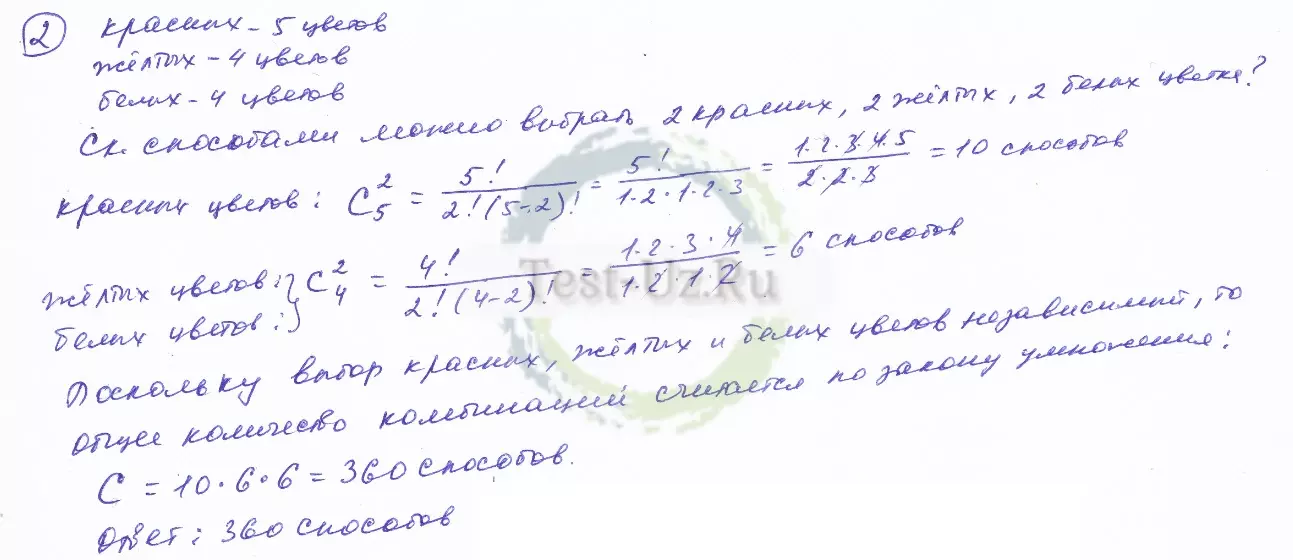 2 красных - 5 цветов
жёлтых - 4 цветов
белых - 4 цветов
Ск. способами можно выбрать 2 красных, 2 жёлтых, 2 белых цветка?
красных цветов: C₅² = 5! / 2!(5-2)! = 5! / 1·2·1·2·3 = 1·2·3·4·5 / 2·2·3 = 10 способов
жёлтых цветов: } C₄² = 4! / 2!(4-2)! = 1·2·3·4 / 1·2·1·2 = 6 способов
белых цветов: }
Test-Uz.Ru
Поскольку выбор красных, жёлтых и белых цветов независимый, то
общее количество комбинаций считается по закону умножения:
C = 10·6·6 = 360 способов.
Ответ: 360 способов